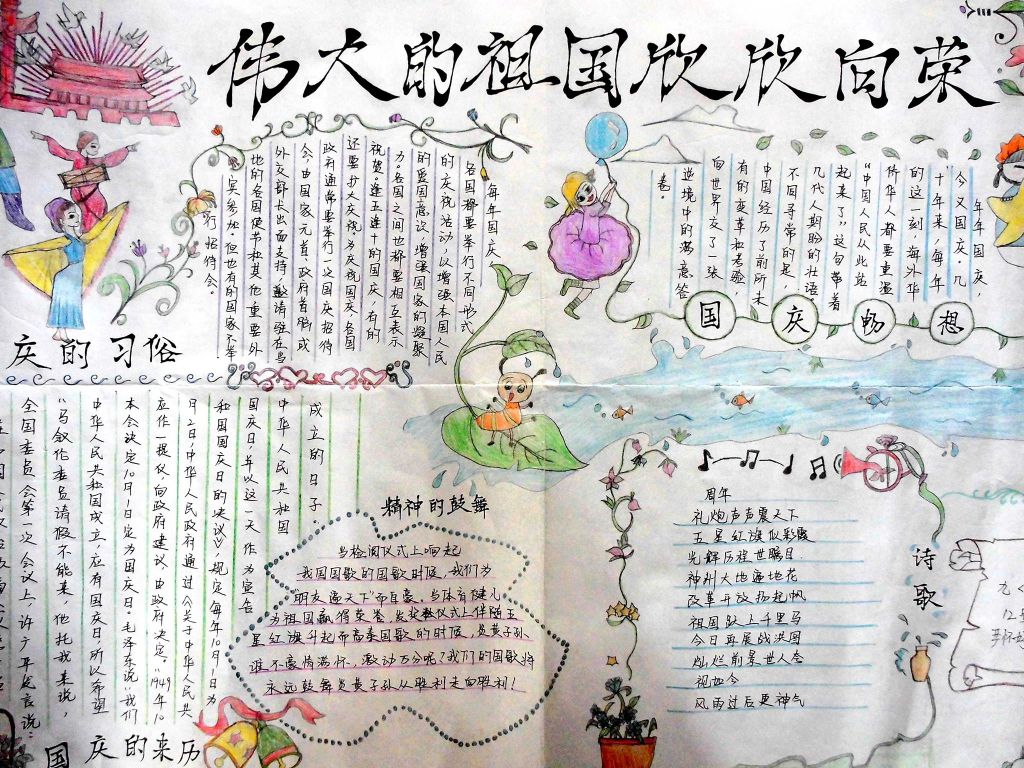 伟大的祖国欣欣向荣
每年国庆，
各国都要举行不同形式
的庆祝活动，以增强本国人民
的爱国意识，增强国家的凝聚
力。各国之间也都要相互表示
祝贺。逢五逢十的国庆，有的
还要扩大庆祝。为庆祝国庆，各国
政府通常要举行一次国庆招待
会，由国家元首、政府首脑或
外交部长出面支持，邀请驻在当
地的各国使节和其他重要外
宾参加。但也有的国家不举
行招待会。
庆的习俗
年年国庆，
今又国庆。几
十年来，每年
的这一刻，海外华
侨华人都要重温
“中国人民从此站
起来了”这句带着
几代人期盼的壮语
不同寻常的是，
中国经历了前所未
有的变革和考验，
向世界交了一张
逆境中的满意答
卷。
国庆畅想
成立的日子。
中华人民共和国
国庆日，并以这一天作为宣告
和国国庆日的决议》，规定每年10月1日为
月2日，中华人民政府通过《关于中华人民共
应作一提仪，向政府建议，由政府决定。”1949年10
本会决定10月1日定为国庆日。毛泽东说：“我们
中华人民共和国成立，应有国庆日，所以希望
“马叙伦委员请假不能来，他托我来说，
全国委员会第一次会议上，许广平发言说：
国庆的来历
精神的鼓舞
当检阅仪式上响起
我国国歌的国歌时候，我们为
“朋友遍天下”而自豪。当体育健儿
为祖国赢得荣誉，发奖仪式上伴随五
星红旗升起而高奏国歌的时候，炎黄子孙
谁不豪情满怀，激动万分呢？我们的国歌将
永远鼓舞炎黄子孙从胜利走向胜利！
诗歌
周年
礼炮声声震天下
五星红旗似彩霞
光辉历程世瞩目
神州大地遍地花
改革开放扬起帆
祖国跃上千里马
今日再展战洪图
灿烂前景世人夸
视如今
风雨过后更神气